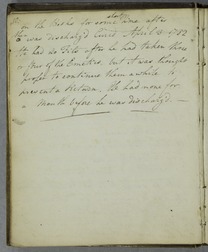 on the Books for some time after
he was discharg'd Cured. April 8 1752
He had no Fits after he had taken three
or four of the Emetics but it was thought
proper to continue them awhile to
prevent a Return. He had none for
a Month before he was discharg'd. —